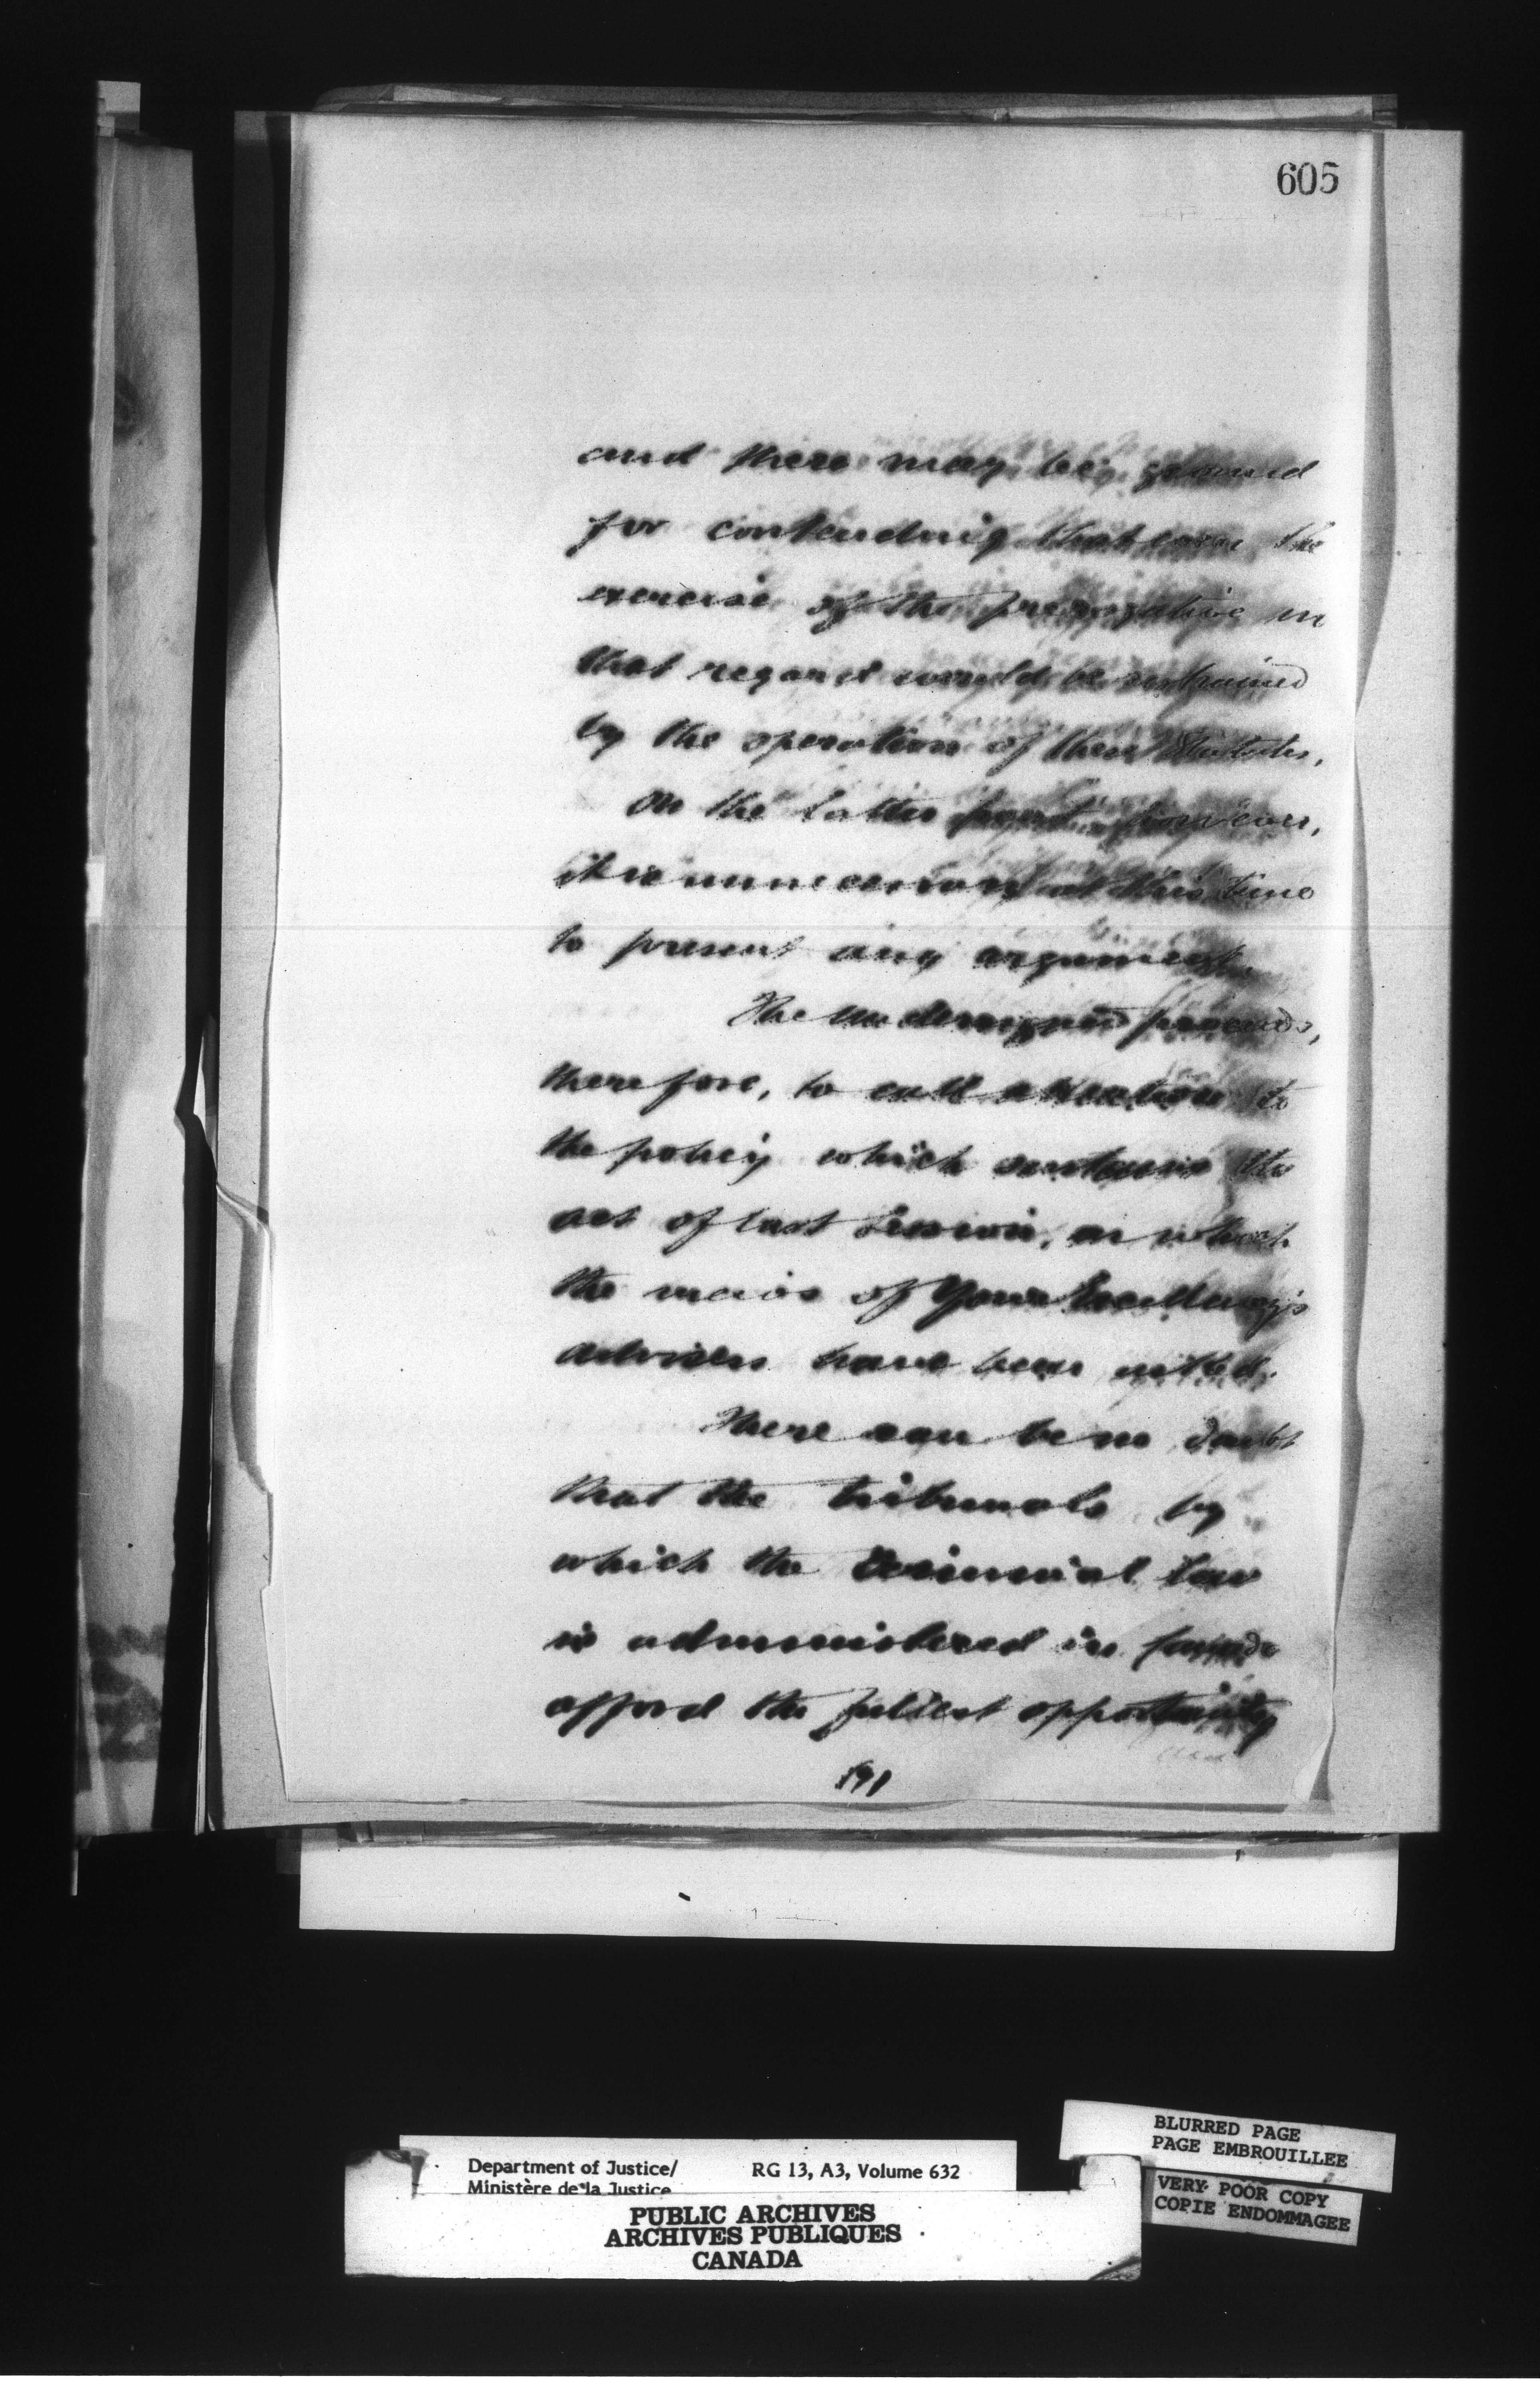 605
and there may be ground
for contending that even the
exercise of the prerogative in
that regard would be restrained
by the operation of these Statutes.
On the latter point, however,
it is unnecessary at this time
to present any argument.
The undersigned proceeds,
therefore, to call attention to
the policy which sustains the
act of last Session, in which
the views of Your Excellency's
advisers have been united.
There can be no doubt
that the tribunals by
which the Criminal law
is administered in Canada
afford the fullest opportunity
and
191
Department of Justice/ RG 13, A3, Volume 632
Ministère de la Justice
PUBLIC ARCHIVES
ARCHIVES PUBLIQUES
CANADA
BLURRED PAGE
PAGE EMBROUILLEE
VERY POOR COPY
COPIE ENDOMMAGEE